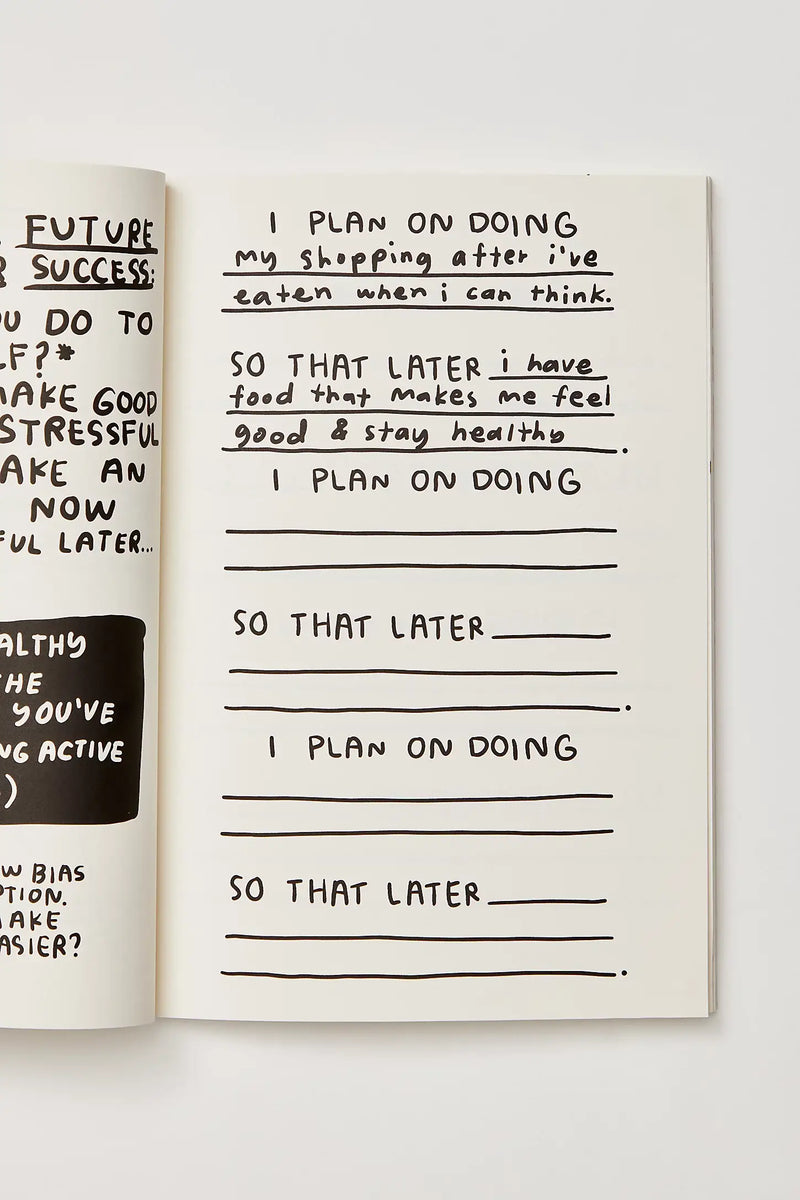 FUTURE
SUCCESS:
DO TO
MAKE GOOD
STRESSFUL
AN
NOW
LATER...
THE
YOU'VE
ACTIVE
BIAS
MAKE
EASIER?
I PLAN ON DOING
my shopping after i've
eaten when i can think.
SO THAT LATER i have
food that makes me feel
good & stay healthy.
I PLAN ON DOING
SO THAT LATER
.
I PLAN ON DOING
SO THAT LATER
.